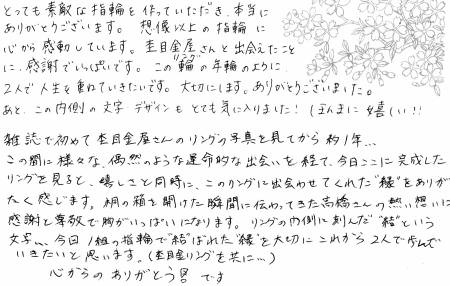 とっても素敵な指輪を作っていただき、本当に
ありがとうございます。想像以上の指輪に
心から感動しています。杢目金屋さんと出会えたこと
に、感謝でいっぱいです。この輪リングの年輪のように
2人で人生を重ねていきたいです。大切にします。ありがとうございました。
あと、この内側の文字・デザインもとても気に入りました！(ほんまに嬉しい!!)
雑誌で初めて杢目金屋さんのリングの写真を見てから約1年...
この間に様々な、偶然のような運命的な出会いを経て、今日ここに完成した
リングを見ると、嬉しさと同時に、このリングに出会わせてくれた"縁"をありが
たく感じます。桐の箱を開けた瞬間に伝わってきた高橋さんの熱い想いに
感謝と尊敬で胸がいっぱいになります。リングの内側に刻んだ"結"という
文字...今日1組の指輪で"結"ばれた"縁"を大切にこれから2人で歩んで
いきたいと思います。(杢目金リングを共に...)
心からのありがとう です